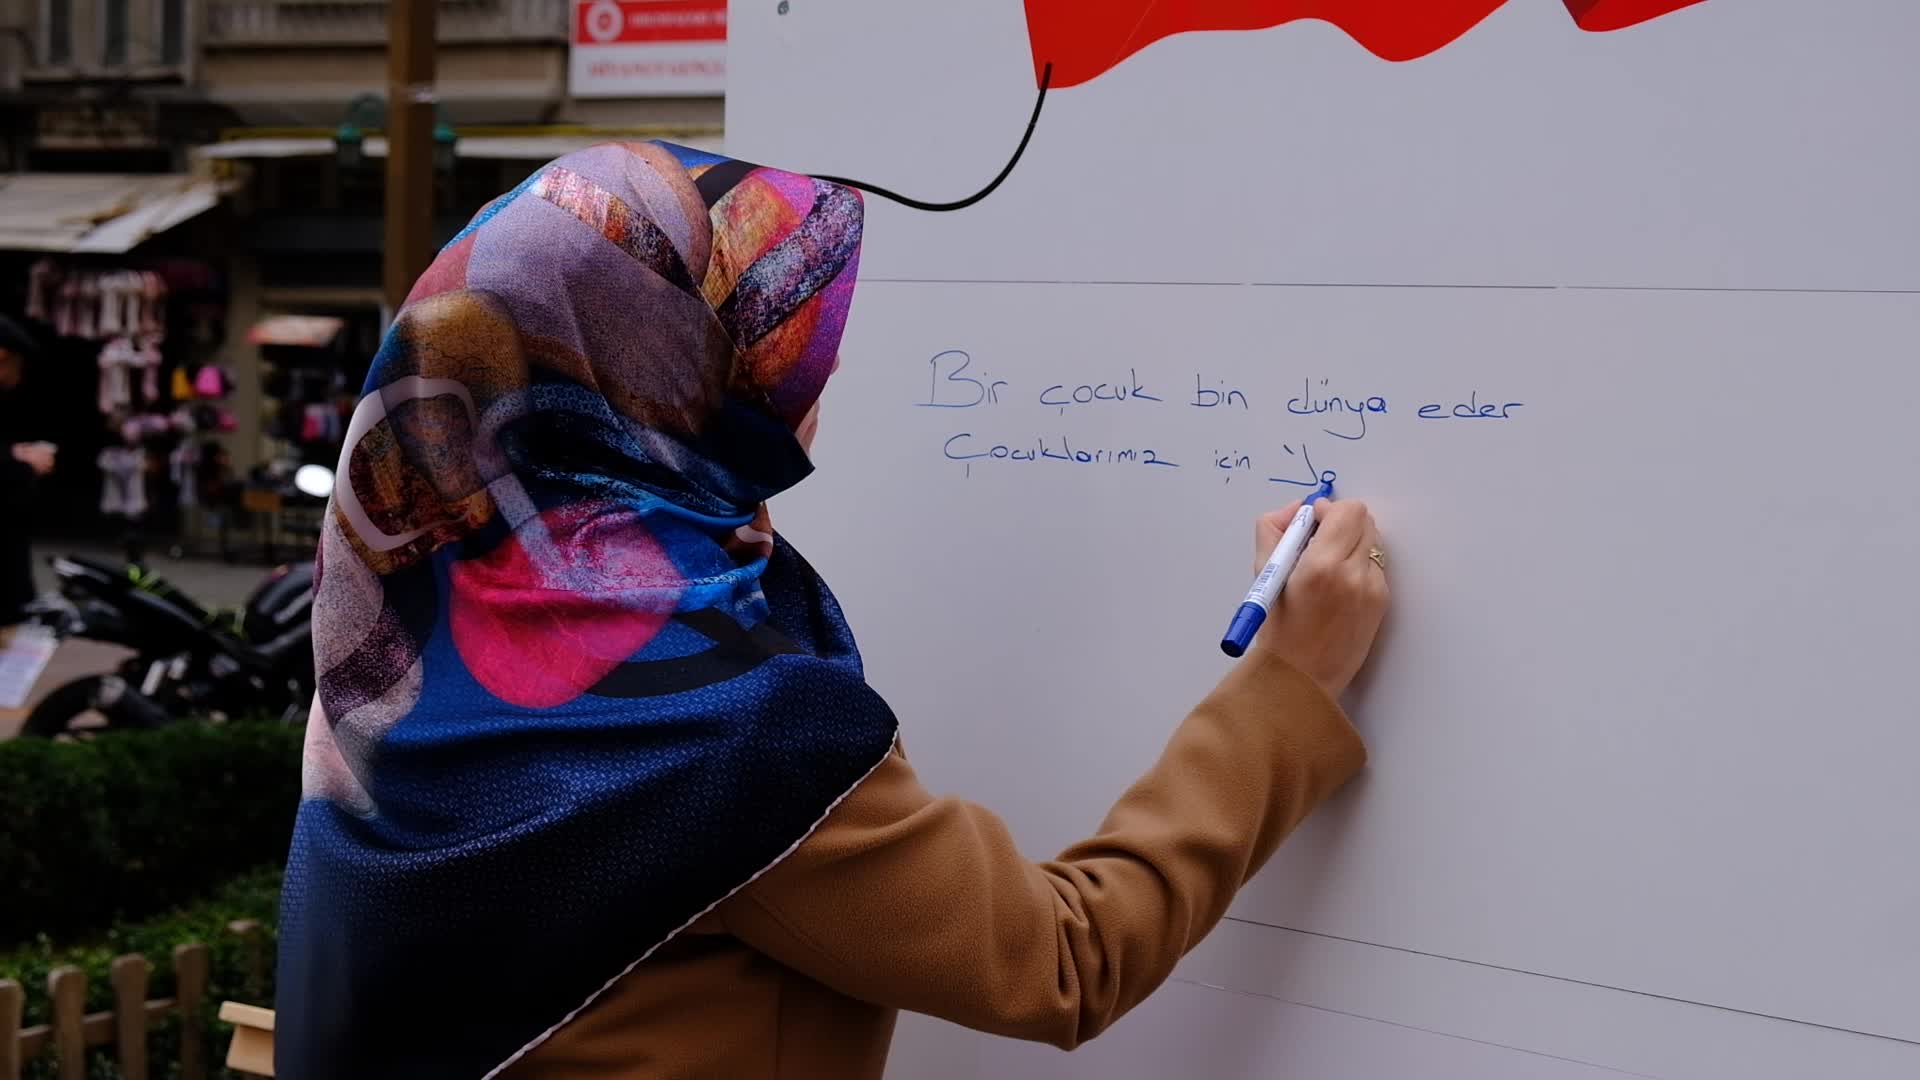 Bir çocuk bin dünya eder
Çocuklarımız için